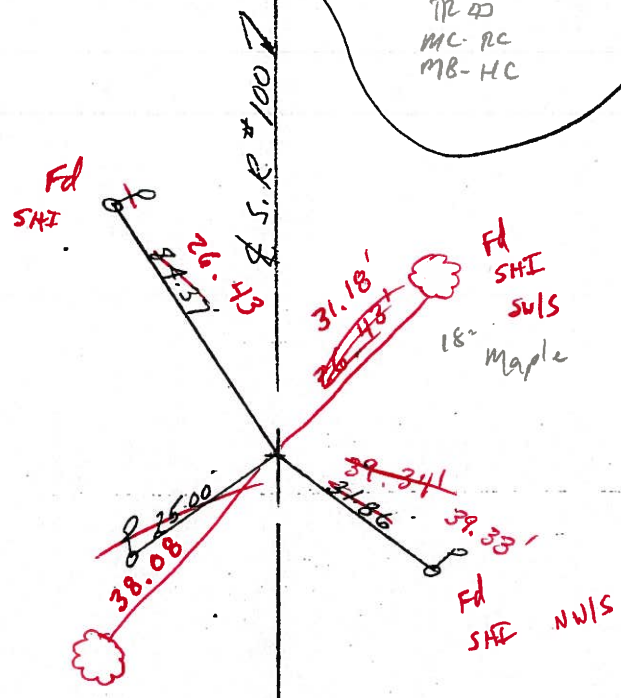 MC-RC
MB-HC
℄ S.R. #100
Fd
SHI
84.37
26.43
31.18'
26.43'
Fd
SHI
SW/S
18"
Maple
39.34'
31.86
39.33'
25.00
38.08
Fd
SHI NW/S